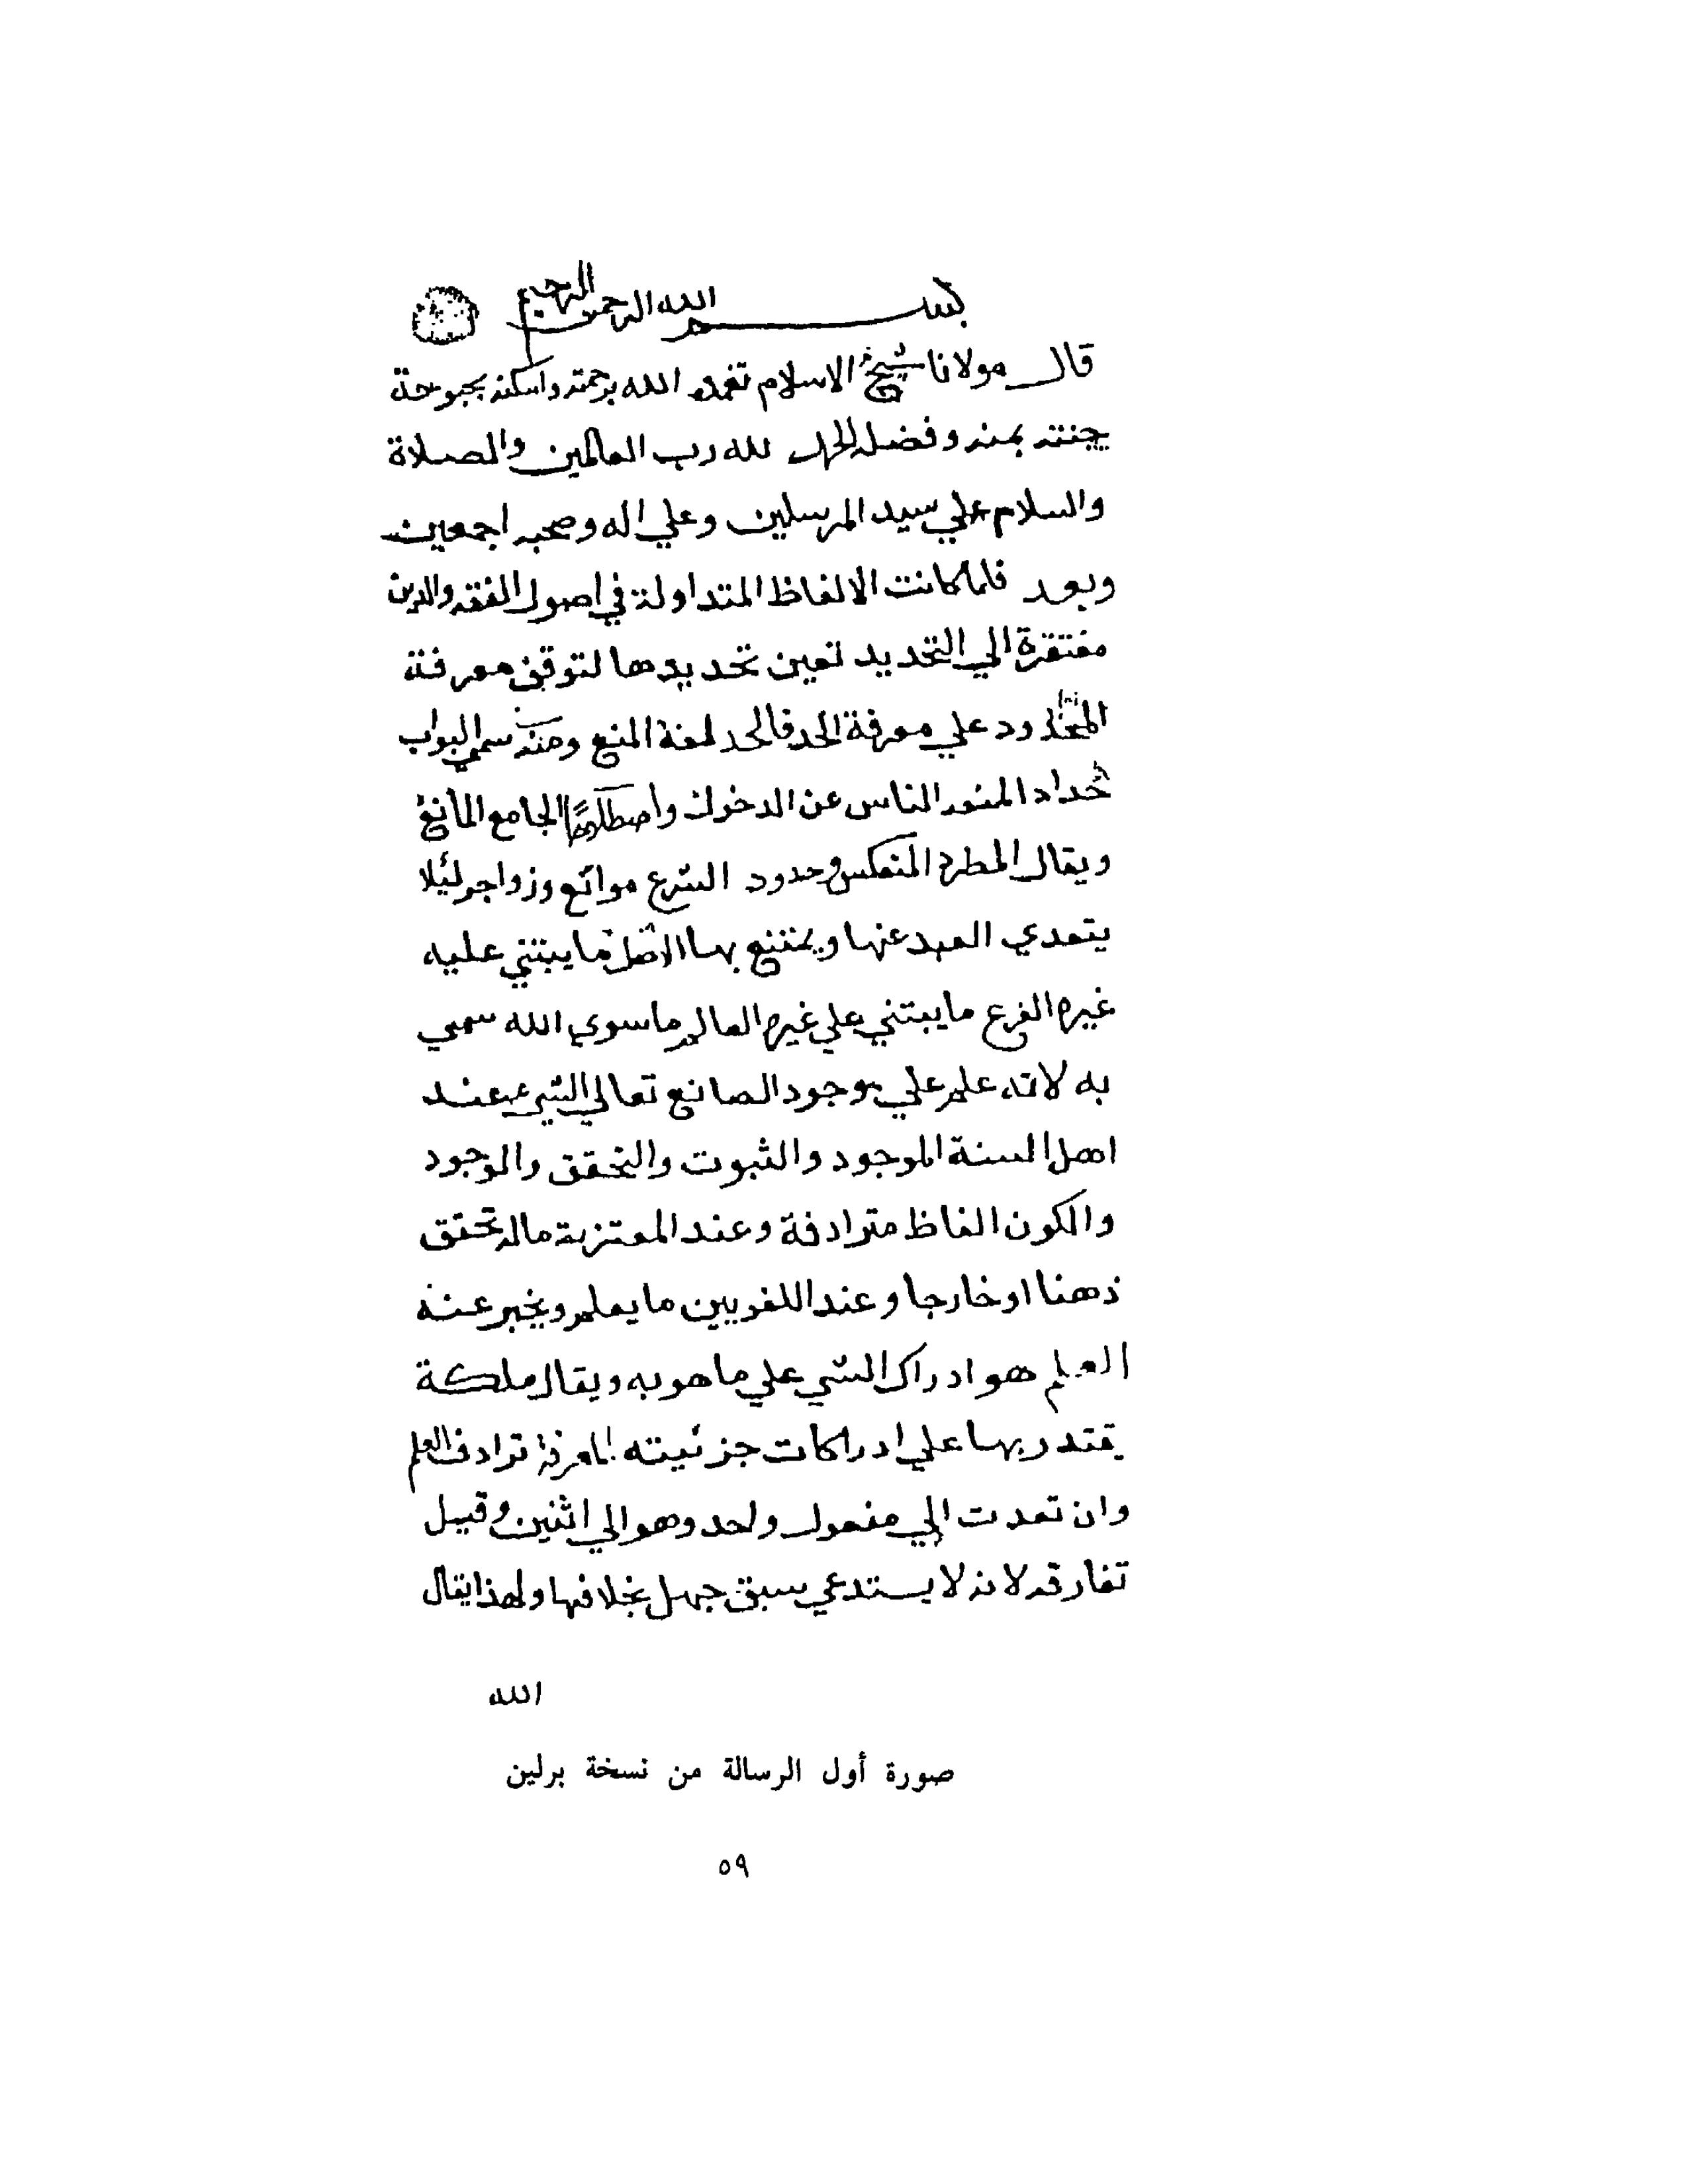 بسم الله الرحمن الرحيم
قال مولانا شيخ الاسلام تغمده الله برحمته واسكنه بحبوحة
جنته بمنه وفضله الحمد لله رب العالمين والصلاة
والسلام علي سيد المرسلين وعلي اله وصحبه اجمعين
وبعد فلما كانت الالفاظ المتداولة في اصول الفقه والدين
مفتقرة الي التحديد تعين تحديدها لتوقف معرفة
المحدود علي معرفة الحد فالحد لغة المنع ومنه سمي البواب
حدادا لمنعه الناس عن الدخول واصطلاحا الجامع المانع
ويقال المطرد المنعكس وحدود الشرع موانع وزواجر لئلا
يتعدي العبد عنها ويمتنع بها الاصل ما يبتني عليه
غيره الفرع ما يبتني علي غيره العالم ما سوي الله سمي
به لانه علم علي موجود الصانع تعالي الشيء عند
اهل السنة الموجود والثبوت والتحقق والوجود
والكون الفاظ مترادفة وعند المعتزلة ماله تحقق
ذهنا او خارجا وعند اللغويين ما يعلم ويخبر عنه
العلم هو ادراك الشي علي ما هو به ويقال ملكة
يقتدر بها علي ادراكات جزئيته المعرفة ترادف العلم
وان تعدت الي مفعول واحد وهو الي اثنين وقيل
تفارقه لانه لا يستدعي سبق جهل بخلافها ولهذا يقال
الله
صورة أول الرسالة من نسخة برلين
٥٩